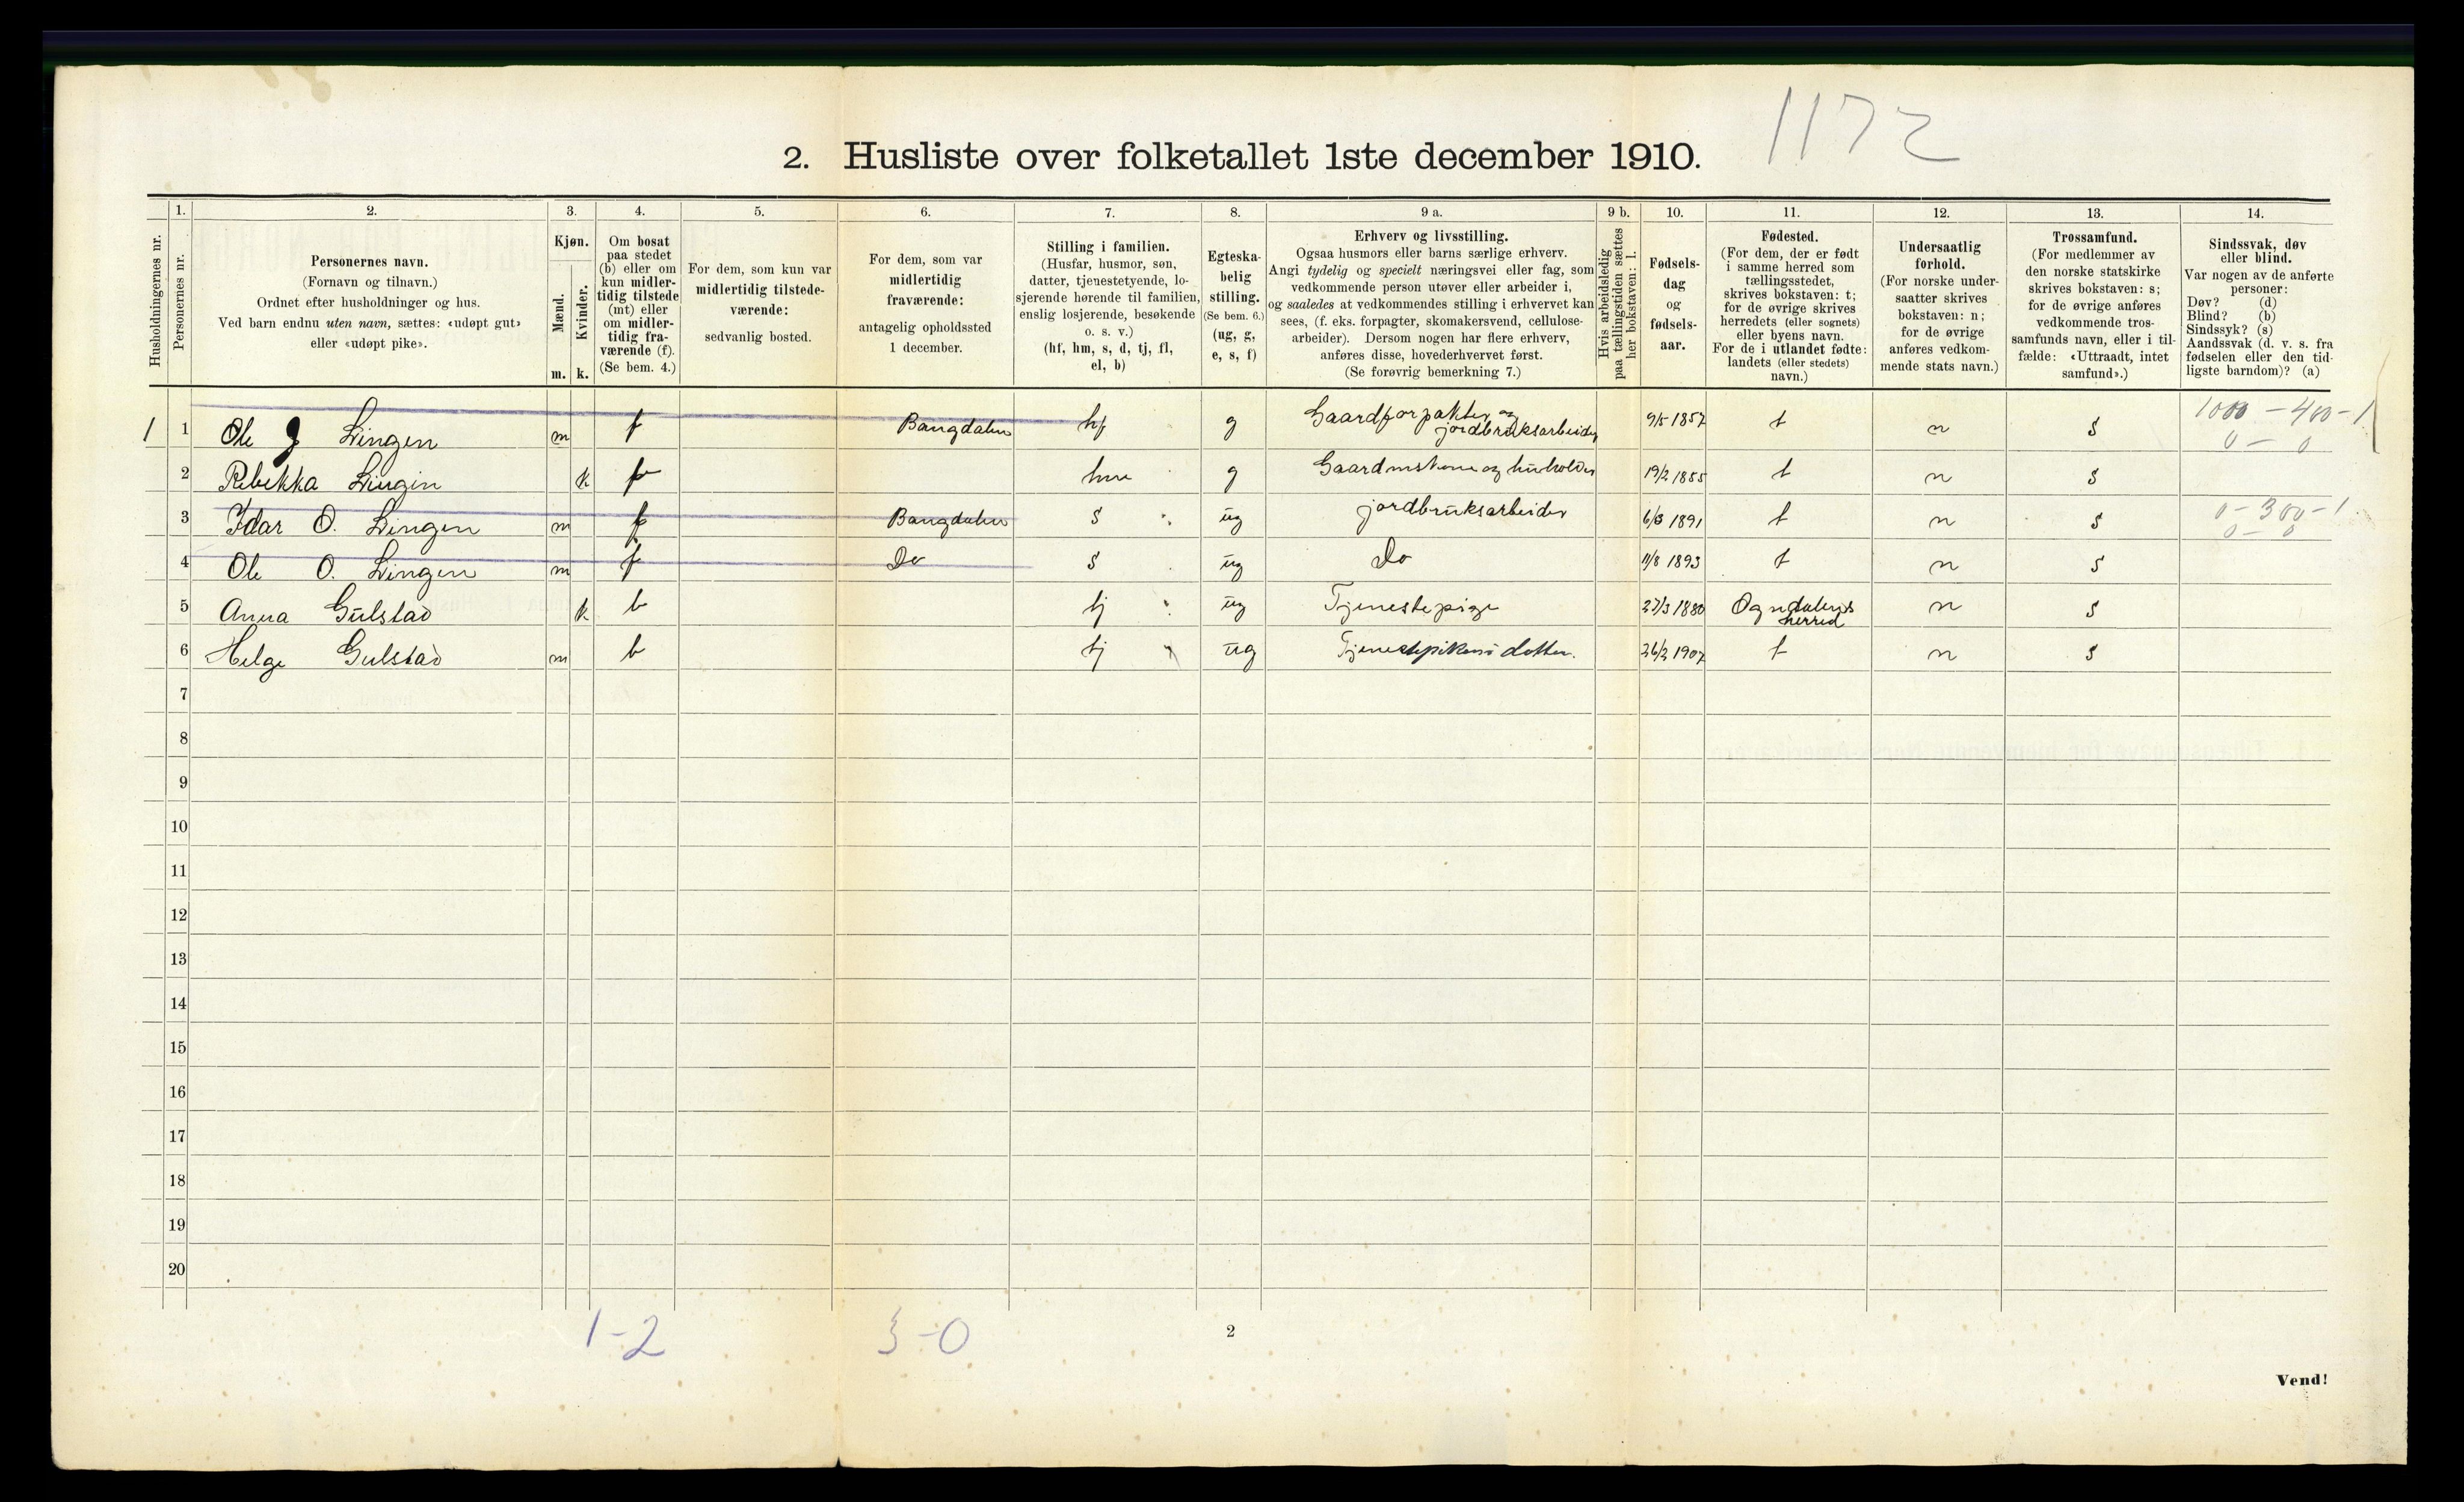 1172
2. Husliste over folketallet 1ste december 1910.
Husholdningernes nr.
1.
Personernes nr.
2.
Personernes navn.
(Fornavn og tilnavn.)
Ordnet efter husholdninger og hus.
Ved barn endnu uten navn, sættes: «udøpt gut»
eller «udøpt pike».
3.
Kjøn.
Mænd.
Kvinder.
m. k.
4.
Om bosat
paa stedet
(b) eller om
kun midler-
tidig tilstede
(mt) eller
om midler-
tidig fra-
værende (f).
(Se bem. 4.)
5.
For dem, som kun var
midlertidig tilstede-
værende:
sedvanlig bosted.
6.
For dem, som var
midlertidig
fraværende:
antagelig opholdssted
1 december.
7.
Stilling i familien.
(Husfar, husmor, søn,
datter, tjenestetyende, lo-
sjerende hørende til familien,
enslig losjerende, besøkende
o. s. v.)
(hf, hm, s, d, tj, fl,
el, b)
8.
Egteska-
belig
stilling.
(Se bem. 6.)
(ug, g,
e, s, f)
9 a.
Erhverv og livsstilling.
Ogsaa husmors eller barns særlige erhverv.
Angi tydelig og specielt næringsvei eller fag, som
vedkommende person utøver eller arbeider i,
og saaledes at vedkommendes stilling i erhvervet kan
sees, (f. eks. forpagter, skomakersvend, cellulose-
arbeider). Dersom nogen har flere erhverv,
anføres disse, hovederhvervet først.
(Se forøvrig bemerkning 7.)
9 b.
Hvis arbeidsledig
paa tællingstiden sættes
her bokstaven: l.
10.
Fødsels-
dag
og
fødsels-
aar.
11.
Fødested.
(For dem, der er født
i samme herred som
tællingsstedet,
skrives bokstaven: t;
for de øvrige skrives
herredets (eller sognets)
eller byens navn.
For de i utlandet fødte:
landets (eller stedets)
navn.)
12.
Undersaatlig
forhold.
(For norske under-
saatter skrives
bokstaven: n;
for de øvrige
anføres vedkom-
mende stats navn.)
13.
Trossamfund.
(For medlemmer av
den norske statskirke
skrives bokstaven: s;
for de øvrige anføres
vedkommende tros-
samfunds navn, eller i til-
fælde: «Uttraadt, intet
samfund».)
14.
Sindssvak, døv
eller blind.
Var nogen av de anførte
personer:
Døv? (d)
Blind? (b)
Sindssyk? (s)
Aandssvak (d. v. s. fra
fødselen eller den tid-
ligste barndom)? (a)
1 1 Ole J Lingen m f Bangdalen hf g Gaardforpakter og jordbruksarbeider 9/5 1857 t n s 1000 - 400 - 1
0 - 0
2 Rebekka Lingen k hm g 19/2 1855 t n s
3 Idar O. Lingen m f Bangdalen s ug jordbruksarbeider 1891 t n s 0 - 300 - 1
0 - 0
4 Ole O. Lingen m f Do s ug Do 11/8 1893 t n s
5 Anna Gulstad k b tj ug Tjenestepige 27/3 1880 Ogndalens herred n s
6 Helge Gulstad m b tj ug Tjenestepikens datter. 26/2 1907 t n s
7
8
9
10
11
12
13
14
15
16
17
18
19
20
1-2 3-0
2
Vend!